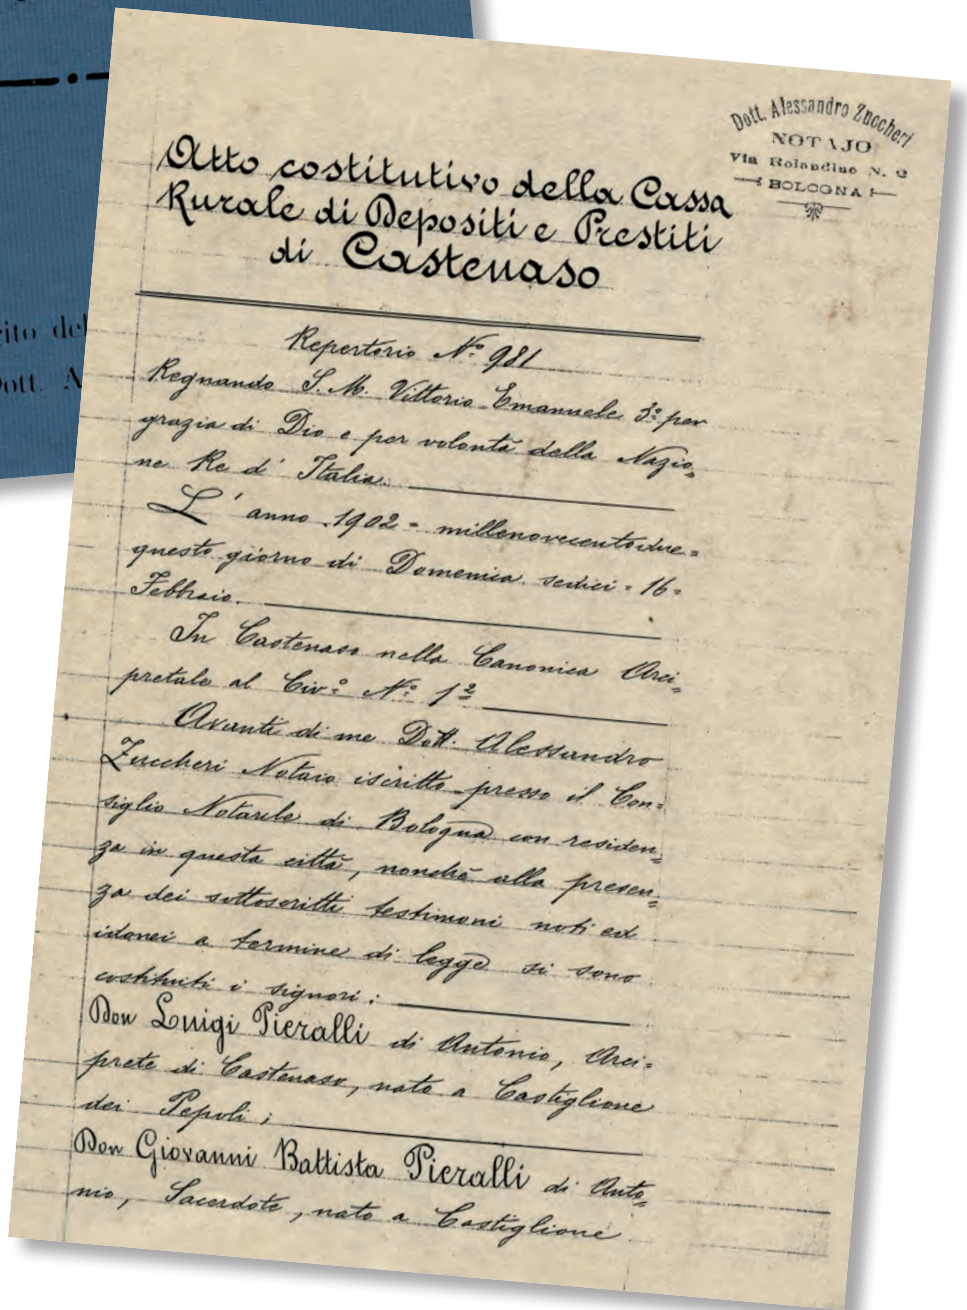 ito del
Dott. A
Dott. Alessandro Zuccheri
NOTAJO
Via Rolandino N. 2
BOLOGNA
Atto costitutivo della Cassa
Rurale di Depositi e Prestiti
di Castenaso
Repertorio N.º 981
Regnando S. M. Vittorio Emanuele 3º per
grazia di Dio e per volontà della Nazio=
ne Re d' Italia.
L' anno 1902 = millenovecentodue =
questo giorno di Domenica sedici = 16 =
Febbraio.
In Castenaso nella Canonica Arci=
pretale al Civ.º N.º 1º
Avanti di me Dott. Alessandro
Zuccheri Notaio iscritto presso il Con=
siglio Notarile di Bologna con residen=
za in questa città, nonchè alla presen=
za dei sottoscritti testimoni noti ed
idonei a termine di legge si sono
costituiti i signori:
Don Luigi Pieralli di Antonio, Arci=
prete di Castenaso, nato a Castiglione
dei Pepoli;
Don Giovanni Battista Pieralli di Anto=
nio, Sacerdote, nato a Castiglione